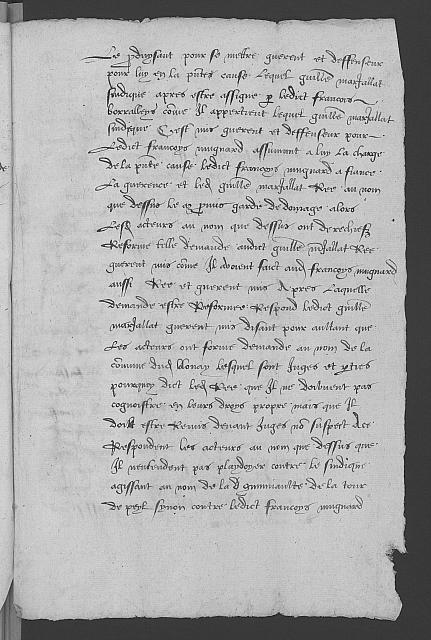 Le produysant pour se mettre guerent et deffenseur
pour luy en la pnte cause Lequel guille marjallat
sindique apres estre assigne p ledict francoys
borralleys côme Il appertient lequel guille marjallat
sindeque C'est mis guerent et deffenseur pour
Ledict francoys mugnard assumant a luy La charge
de la pnte cause ledict francoys mugnard a fiance
La guerence et led guille marjallat Ree au nom
que dessus le a pmis garde de domage alors
Lesd acteurs au nom que dessus ont derechefz
Reforme telle demande audict guille mjallat Ree
guerent mis côme Il avoient faict aud francoys mugnard
aussi Ree et guerent mis Apres Laquelle
demande estre Reformee Respond ledict guille
marjallat guerent mis disant pour aultant que
Les acteurs ont forme demande au nom de la
cômune dud blonay lesquel sont Juges et pties
pourquoy dict led Ree que Il ne doibvent pas
cognoistre en leurs droys propre mais que Il
doibt estre Remis devant Juges nô suspect de ce
Respondent les acteurs au nom que dessus que
Il nentendent pas playdoyer contre le sindique
agissant au nom de la d cummunaulte de la tour
de peyl synon contre ledict francoys mugnard